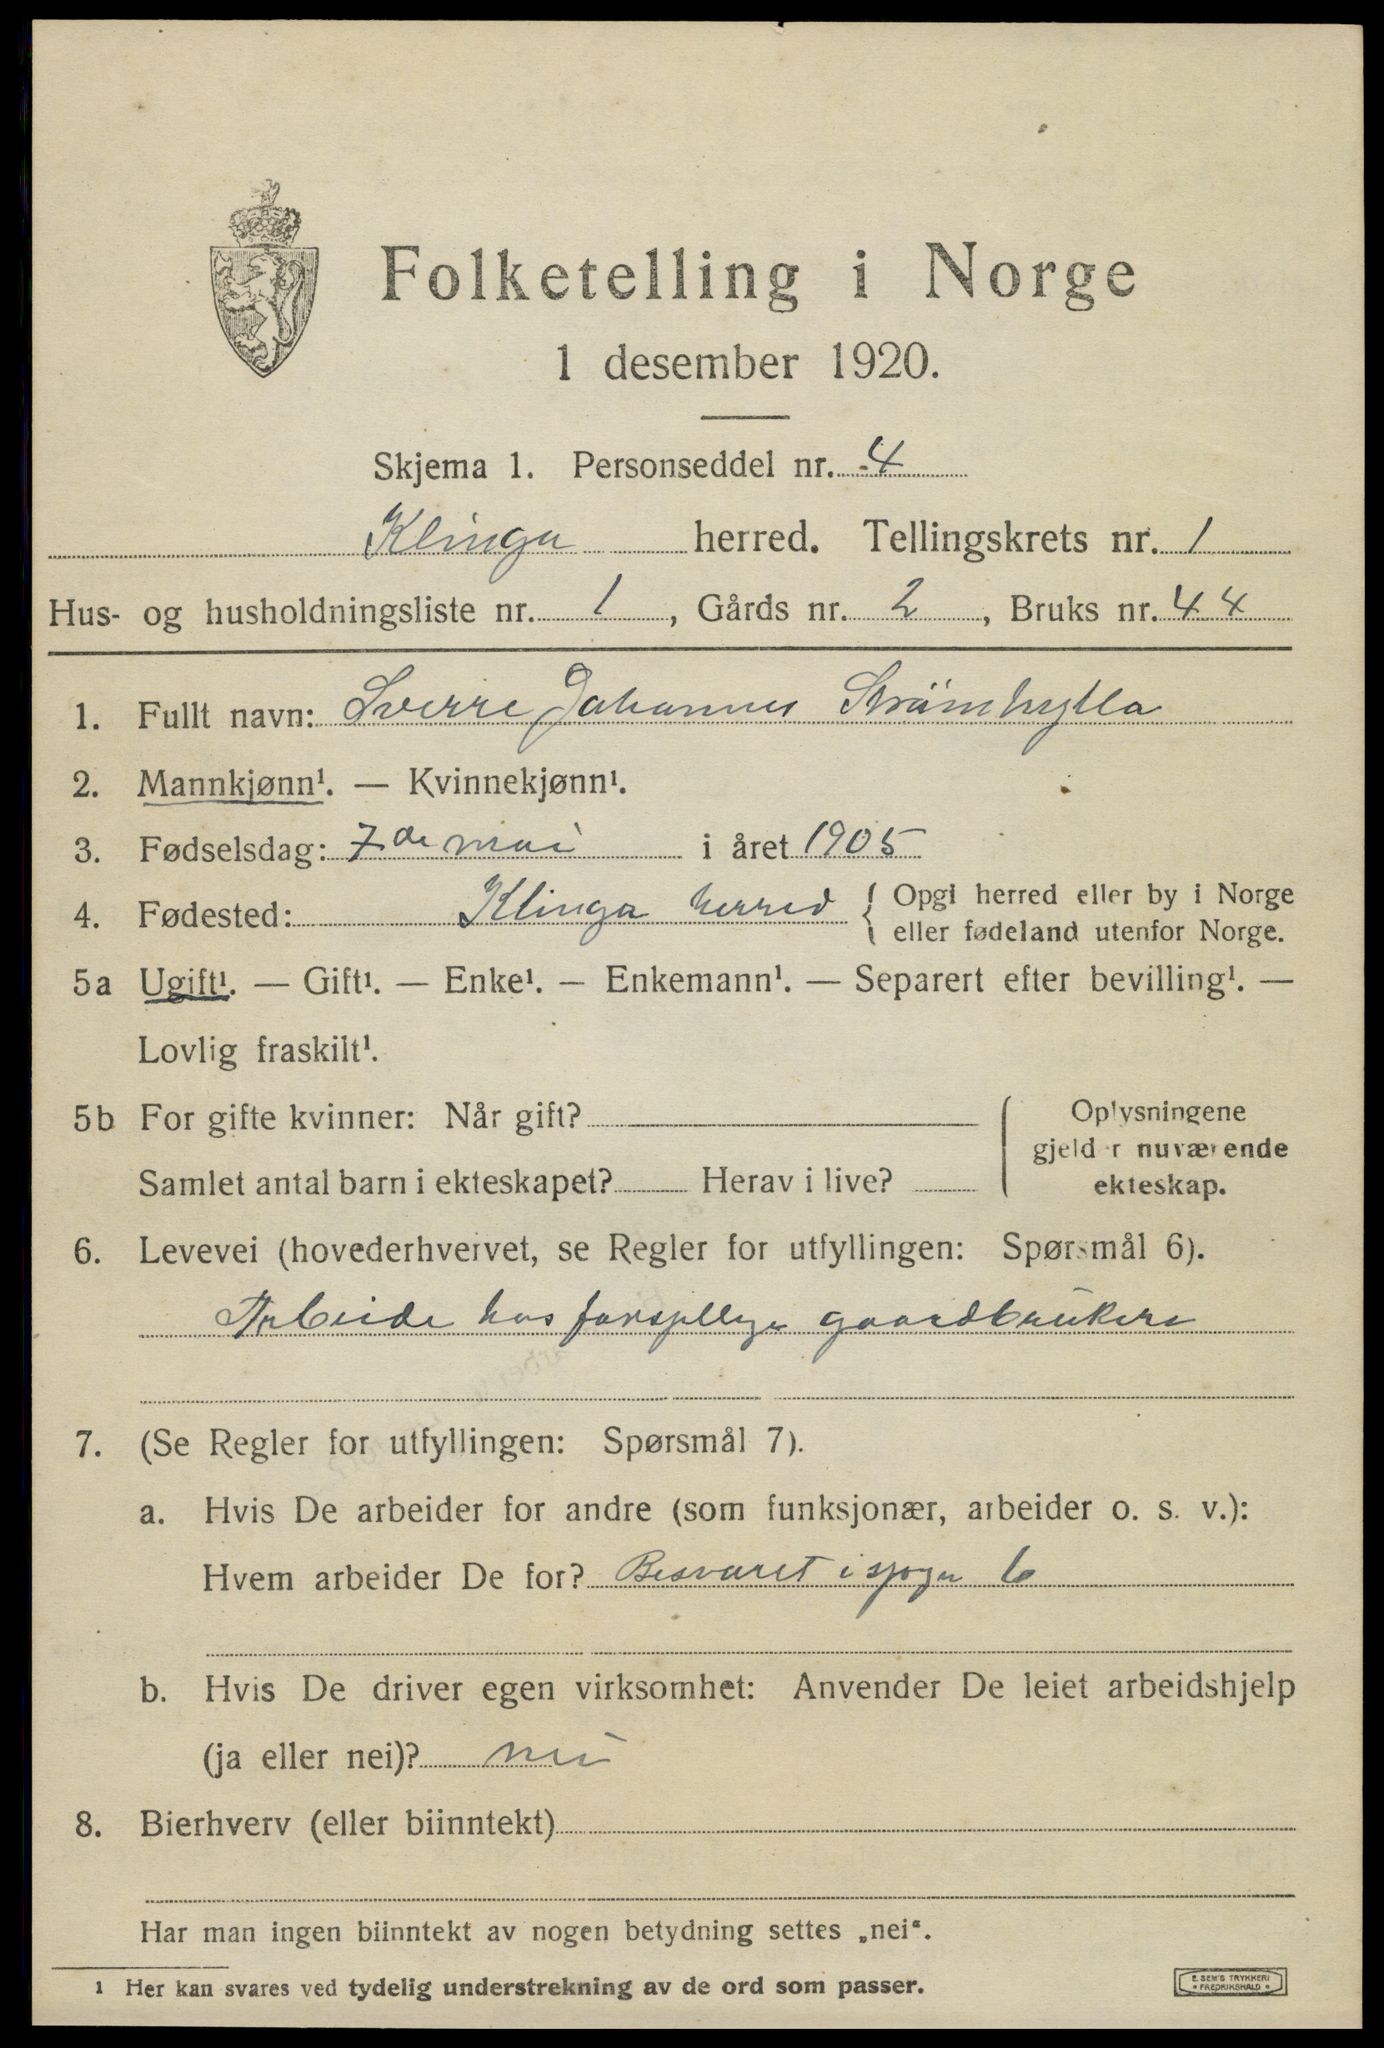 Folketelling i Norge
1 desember 1920.
Skjema 1. Personseddel nr. 4
Klinga herred. Tellingskrets nr. 1
Hus- og husholdningsliste nr. 1, Gårds nr. 2, Bruks nr. 44
1. Fullt navn: Sverre Johannes Strömhylla
2. Mannkjønn¹. — Kvinnekjønn¹.
3. Fødselsdag: 7de mai i året 1905
4. Fødested: Klinga herred { Opgi herred eller by i Norge
eller fødeland utenfor Norge.
5a Ugift¹. — Gift¹. — Enke¹. — Enkemann¹. — Separert efter bevilling¹. —
Lovlig fraskilt¹.
5b For gifte kvinner: Når gift?
Samlet antal barn i ekteskapet? Herav i live?
Oplysningene
gjelder nuværende
ekteskap.
6. Levevei (hovederhvervet, se Regler for utfyllingen: Spørsmål 6).
Arbeide hos gaardbrukere
7. (Se Regler for utfyllingen: Spørsmål 7).
a. Hvis De arbeider for andre (som funksjonær, arbeider o. s. v.):
Hvem arbeider De for? Besvaret i 6
b. Hvis De driver egen virksomhet: Anvender De leiet arbeidshjelp
(ja eller nei)? nei
8. Bierhverv (eller biinntekt)
Har man ingen biinntekt av nogen betydning settes „nei“.
1 Her kan svares ved tydelig understrekning av de ord som passer.
E. SEM'S TRYKKERI
• FREDRIKSHALD •